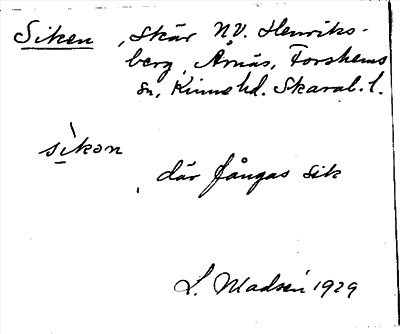 Siken, skär N.V. Henriks-
berg, Årnäs, Forshems
sn, Kinne hd. Skarab. l.
sìkən
, där fångas sik
L. Madsén 1929